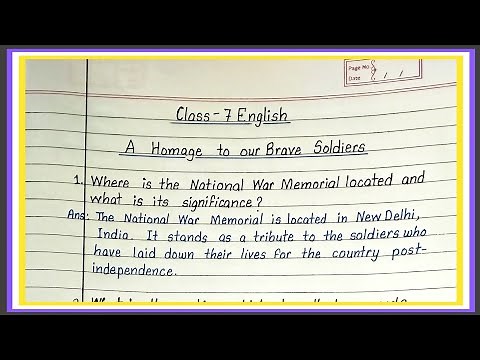 Page No
Date / /
Class-7 English
A Homage to our Brave Soldiers
1. Where is the National War Memorial located and
what is its significance?
Ans: The National War Memorial is located in New Delhi,
India. It stands as a tribute to the soldiers who
have laid down their lives for the country post-
independence.